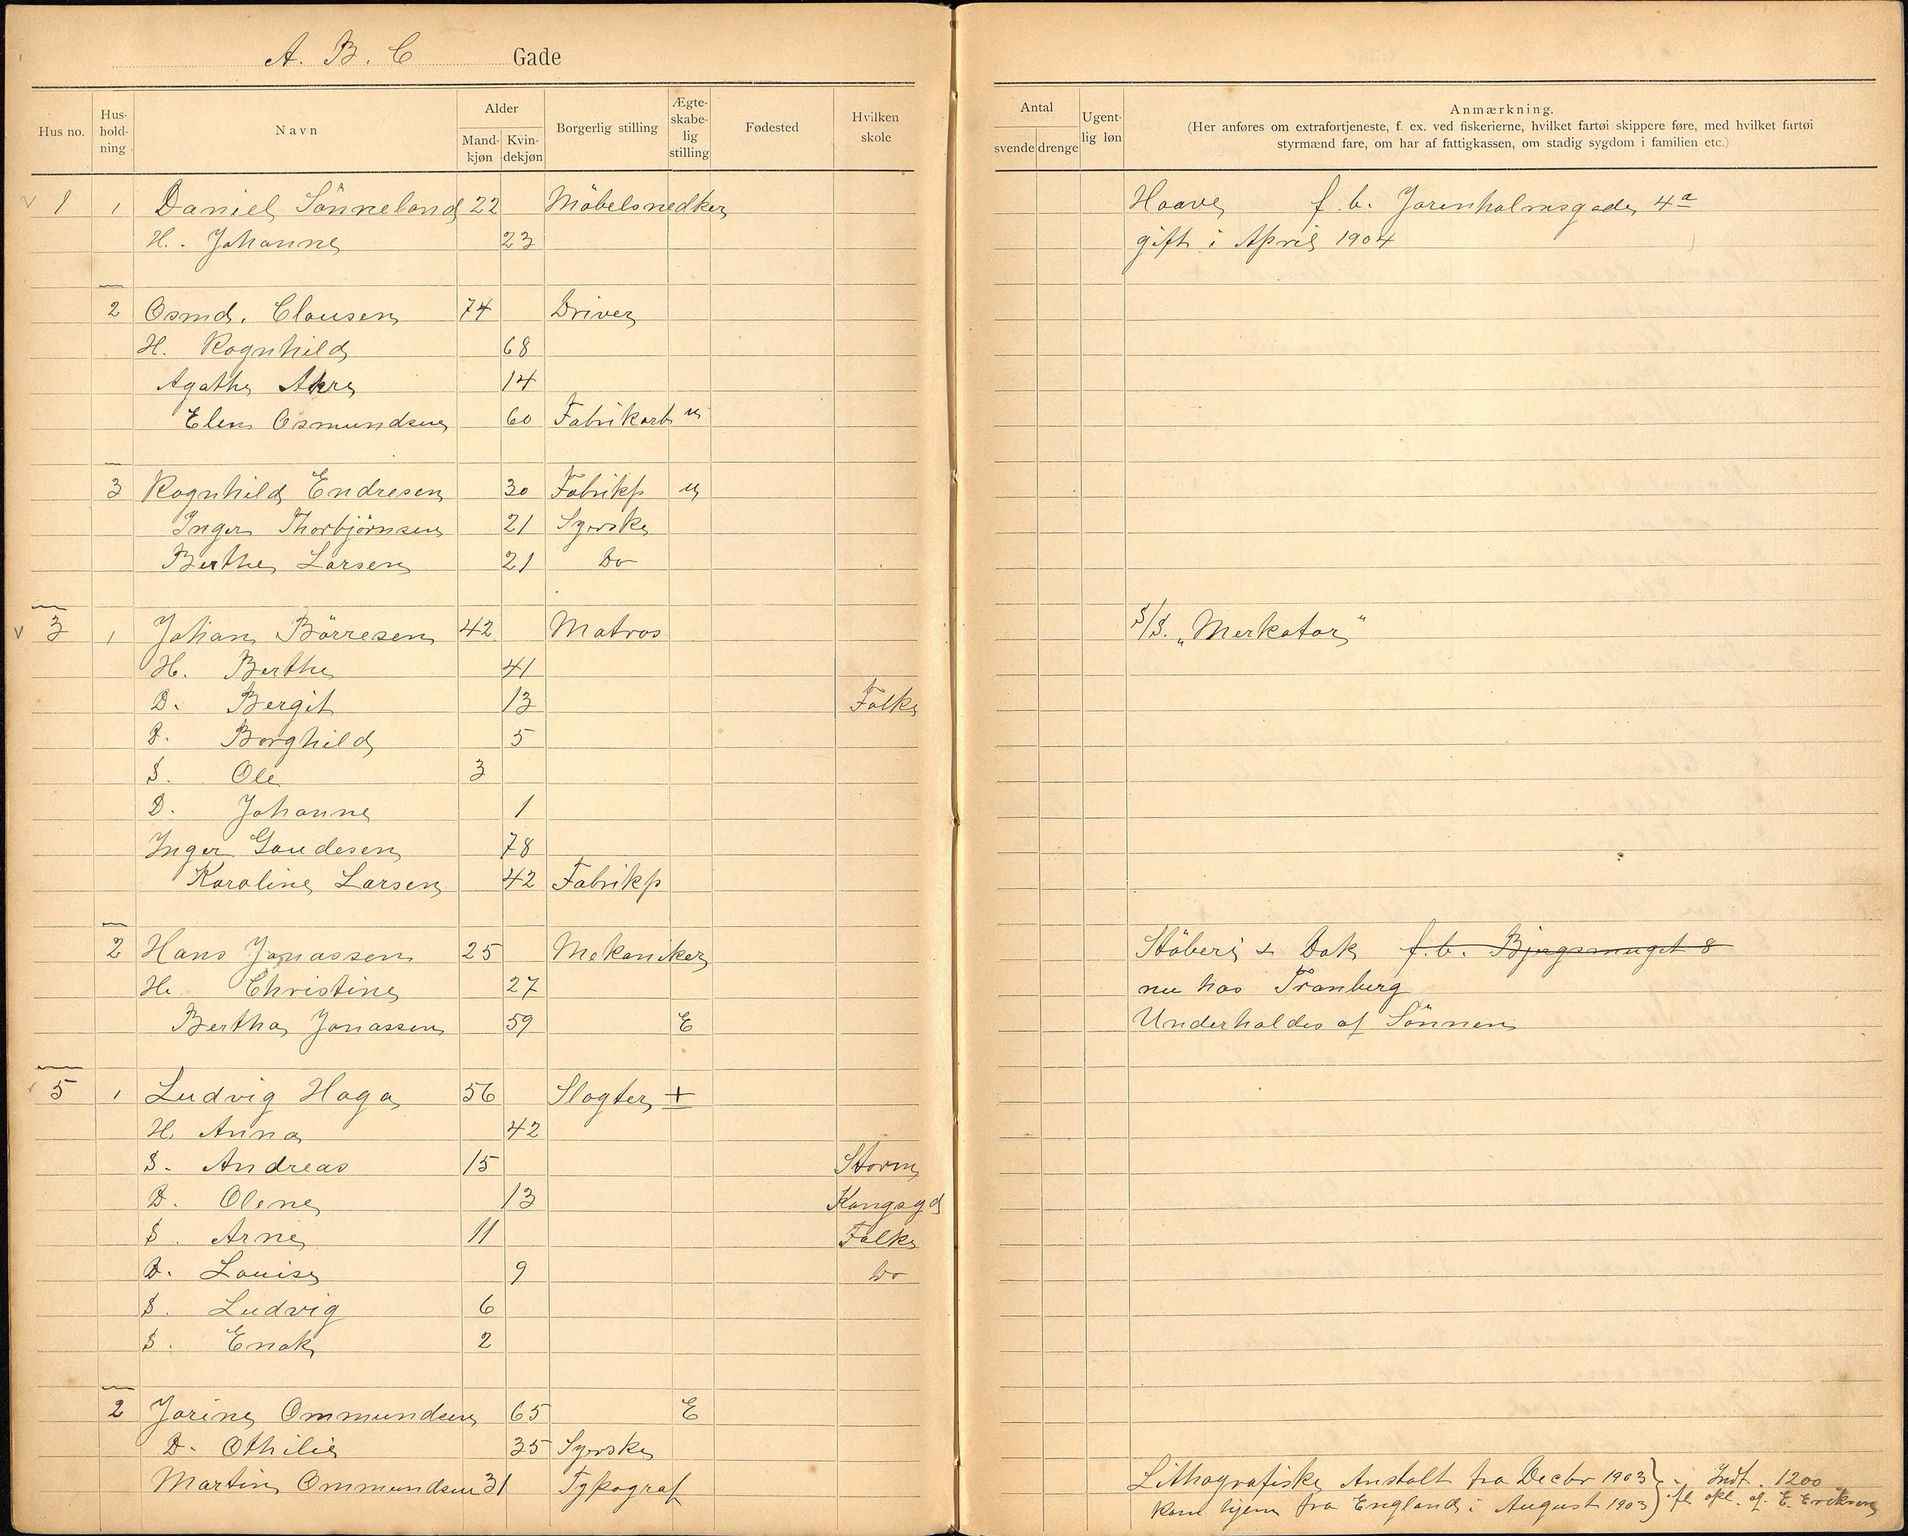 A. B. C Gade
Hus no. Hus-hold-ning Navn Alder Mand-kjøn Kvin-dekjøn Borgerlig stilling Ægte-skabe-lig stilling Fødested Hvilken skole
Antal svende drenge Ugent-lig løn Anmærkning.
(Her anføres om extrafortjeneste, f. ex. ved fiskerierne, hvilket fartøi skippere føre, med hvilket fartøi
styrmænd fare, om har af fattigkassen, om stadig sygdom i familien etc.)
1 1 Daniel Sönneland 22 Möbelsnedker Haaver f. b. Jorenholmsgade 4a
H. Johanne 23 gift i April 1904
2 Osmd. Clausen 74 Driver
H. Ragnhild 68
Agathe Akre 14
Elen Osmundsen 60 Fabrikarb u
3 Ragnhild Endresen 30 Fabrikp u
Inger Thorbjörnsen 21 Syerske
Berthe Larsen 21 Do
3 1 Johan Börresen 42 Matros S/S. „Merkator"
H. Berthe 41
D. Bergit 13 Folke
D. Borghild 5
S. Ole 3
D. Johanne 1
Inger Gaudesen 78
Karoline Larsen 42 Fabrikp
2 Hans Jonassen 25 Mekaniker Stöberi & Dok f. b. Bjergsmuget 8
H. Christine 27 nu hos Tranberg
Bertha Jonassen 59 E Underholdes af Sönnen
5 1 Ludvig Haga 56 Slagter +
H. Anna 42
S. Andreas 15 Storm
D. Olene 13 Kongsgd
S. Arne 11 Folke
D. Louise 9 Do
S. Ludvig 6
S. Enok 2
2 Jorine Ommundsen 65 E
D. Othilie 35 Syerske
Martin Ommundsen 31 Typograf Lithografiske Anstalt fra Decbr 1903 } Indt. 1200
kom hjem fra England i August 1903 } fl opl. af E. Eriksen